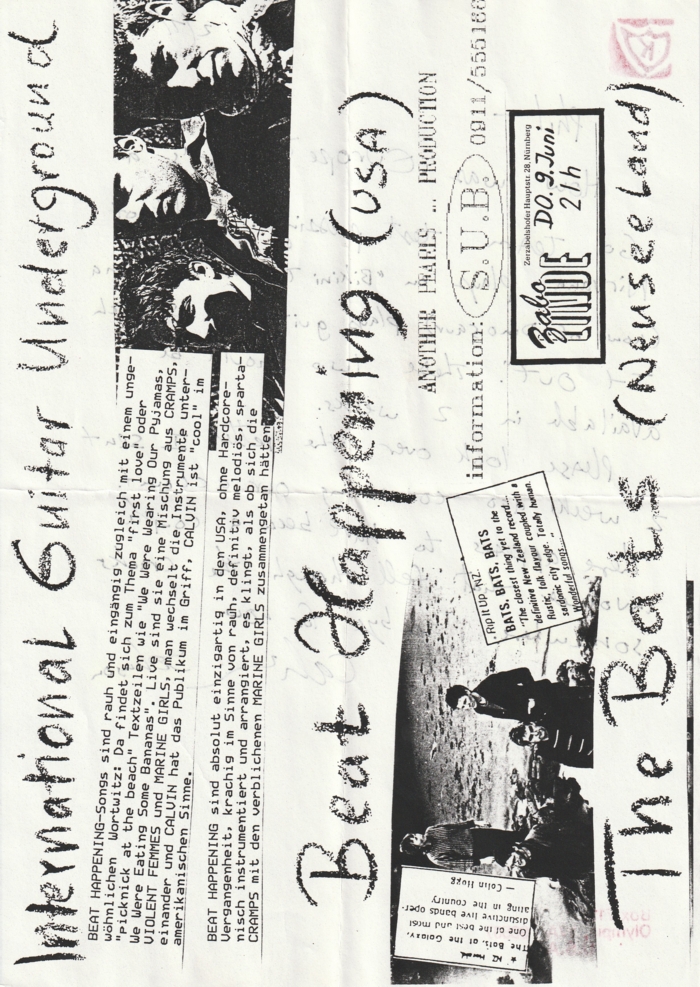 International Guitar Underground
BEAT HAPPENING-Songs sind rauh und eingängig zugleich mit einem unge-
wöhnlichen Wortwitz: Da findet sich zum Thema "first love" oder
"picknick at the beach" Textzeilen wie "We Were Wearing Our Pyjamas,
We Were Eating Some Bananas". Live sind sie eine Mischung aus CRAMPS,
VIOLENT FEMMES und MARINE GIRLS, man wechselt die Instrumente unter-
einander und CALVIN hat das Publikum im Griff, CALVIN ist "cool" im
amerikanischen Sinne.
BEAT HAPPENING sind absolut einzigartig in den USA, ohne Hardcore-
Vergangenheit, krachig im Sinne von rauh, definitiv melodiös, sparta-
nisch instrumentiert und arrangiert, es klingt, als ob sich die
CRAMPS mit den verblichenen MARINE GIRLS zusammengetan hätten
Beat Happening (USA)
ANOTHER PEARLS ... PRODUCTION
information: S.U.B. 0911/555188
Zerzabelshofer Hauptstr. 28, Nürnberg
Zabo
LINDE
DO. 9. Juni
21h
Rip It Up NZ.
BATS, BATS, BATS
"The closest thing yet to the
definitive New Zealand record...
folk flavour coupled with a
Rustic, city edge. Totally human.
sardonic
Wonderful songs...."
★ NZ Herald
The Bats, of the Galaxy,
One of the best and most
distinctive live bands oper-
ating in the country.
— Colin Hogg
The Bats (Neuseeland)
K